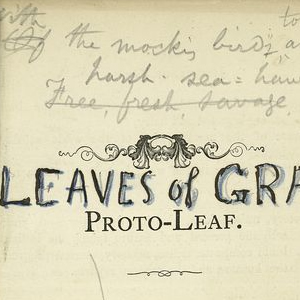 with to
Of the mocking birds a
harsh - sea = haw
Free, fresh, savage
LEAVES of GRA
PROTO-LEAF.